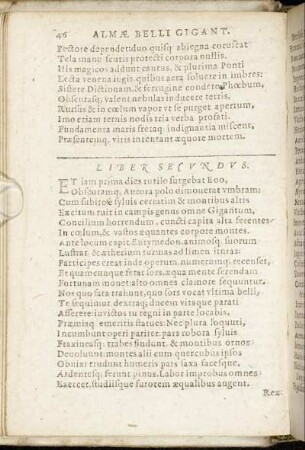 46 ALMÆ BELLI GIGANT.
Pectore dependet duo quisq; abiegna coruscat
Tela manu scutis protecti corpora nullis.
His magicos addunt cantus, & plurima Ponti
Lecta venena iugis, quibus aera soluere in imbres:
Sistere Dictionam, & ferrugine condere Phœbum,
Obscurasq; valent nebulas inducere terris.
Rursus & in cœlum vapor vt se purget apertum,
Imo etiam ternis nodis tria verba profati.
Fundamenta maris fretaq; indignantia miscent,
Præsentemq; viris intentant æquore mortem.
LIBER SECVNDVS.
ET iam prima dies rutilo surgebat Eoo,
Obscuramq; Aurora polo dimouerat vmbram:
Cum subito è syluis certatim & montibus altis
Excitum ruit in campis genus omne Gigantum,
Concilium horrendum, cuncti capita alta ferentes
In cœlum, & vastos æquantes corpore montes.
Ante locum capit Eurymedon, animosq; suorum
Lustrat & ætherium turmas ad limen ituras:
Participes creat inde operum, numerumq; recenset,
Et quamcunque fetat sors, æqua mente ferendam
Fortunam monet: alto omnes clamore sequuntur.
Nos quo fata trahunt, quo sors vocat vltima belli,
Te sequimur dextraq; ducem vitaque parati
Asserere: iuvictos tu regni in parte locabis,
Præmisq; emeritis statues: Nec plura loquuti,
Incumbunt operi pariter: pars robora syluis
Fraxineasq; trabes findunt, & montibus ornos:
Deuoluunt montes alii cum quercubus ipsos
Obnixi trudunt humeris pars saxa facesque.
Ardentesq; ferunt pinus. Labor improbus omnes
Exercet, studiisque furorem æqualibus augent.
Rex